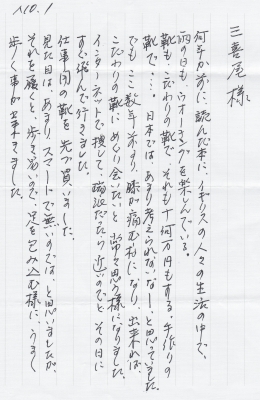 No.1
三喜尾様
何年か前に、読んだ本に、イギリスの人々の生活の中で、
雨の日も、ウオーキングを楽しんでいる。
靴も、こだわりの靴で、それも十何万円もする。手作りの
靴で・・・日本では、あまり考えられないなー、と思っていました。
でも、ここ数年前より、膝が痛む様になり、出来れば、
こだわりの靴にめぐり会いたいと、常々思う様になりました。
インターネットで捜して、臨海だったら近いのでと、その日に
すぐ飛んで行きました。
仕事用の靴を先づ買いました。
見た目は、あまりスマートで無いのでは、と思いましたが、
それを履くと、歩き易いので、足を包み込む様に、うまく
歩く事が出来ました。